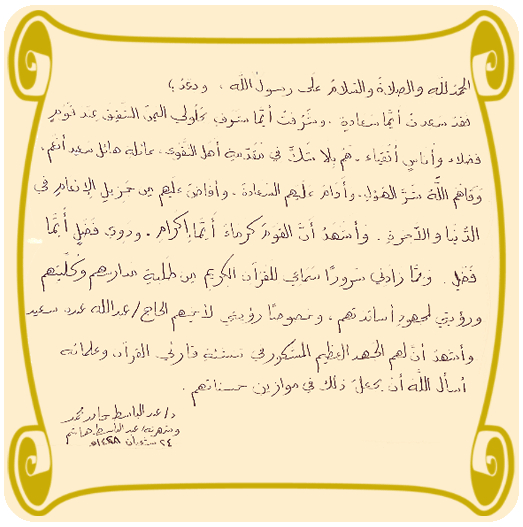 الحمد لله والصلاة والسلام على رسول الله ، وبعد ؛
لقد سعدت أيَّما سعادةٍ . وشُرِّفت أيَّما شرف بحلولي اليمن الشقيق عند قومٍ
فضلاء وأُناسٍ أتقياء . هم بلا شكٍّ في مقدمة أهل التقوى . عائلة هائل سعيد أنعم ،
وقاهم اللَّهُ شرَّ الهول . وأدام عليهم السعادة . وأفاض عليهم من جزيل الإنعام في
الدنيا والآخرة . وأشهدُ أنَّ القوم كرماءُ أيَّما إكرام . وذوي فضلٍ أيَّما
فضلٍ . ومِمَّا زادني سرورًا سماعي للقرآن الكريم من طلبة مدارسهم وكلّيتهم
ورؤيتي لمجهود أساتذتهم ، وخصوصًا رؤيتي لأخيهم الحاج / عبدالله عبده سعيد
وأشهدُ أنَّ لهم الجهد العظيم المشكور في تنشئة قارئي القرآن وعلمائه
أسأل اللَّه أن يجعل ذلك في موازين حسناتهم .
د / عبد الباسط حامد محمد
وشهرته / عبد الباسط هاشم
٢٤ شعبان ١٤٢٨هـ